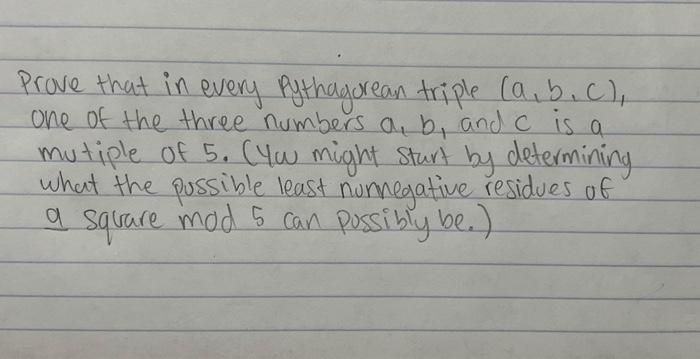 Prove that in every Pythagorean triple (a, b, c),
one of the three numbers a, b, and c is a
mutiple of 5. (You might start by determining
what the possible least nonnegative residues of
a square mod 5 can possibly be.)